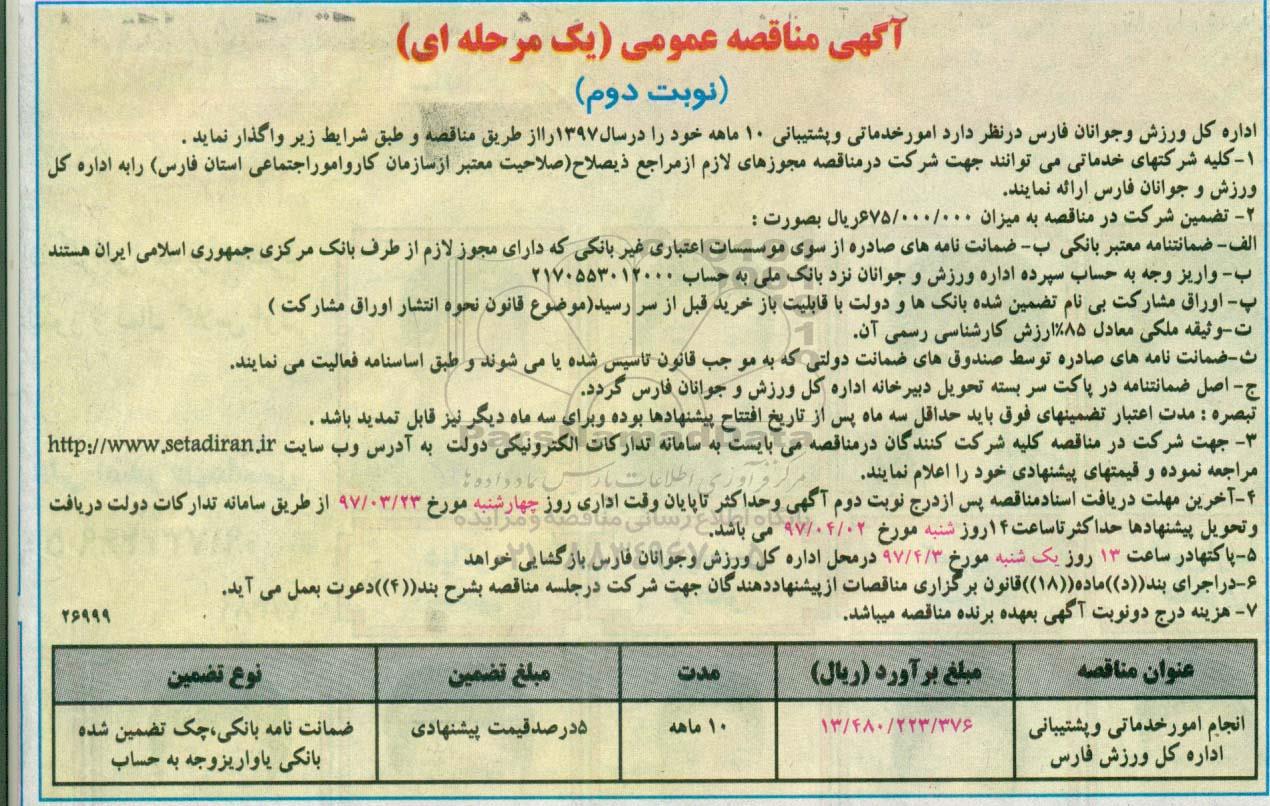 آگهی مناقصه عمومی (یک مرحله ای)
(نوبت دوم)
اداره کل ورزش وجوانان فارس درنظر دارد امورخدماتی وپشتیبانی ۱۰ ماهه خود را درسال۱۳۹۷رااز طریق مناقصه و طبق شرایط زیر واگذار نماید .
۱-کلیه شرکتهای خدماتی می توانند جهت شرکت درمناقصه مجوزهای لازم ازمراجع ذیصلاح(صلاحیت معتبر ازسازمان کارواموراجتماعی استان فارس) رابه اداره کل
ورزش و جوانان فارس ارائه نمایند.
۲- تضمین شرکت در مناقصه به میزان ۶۷۵/۰۰۰/۰۰۰ریال بصورت :
الف- ضمانتنامه معتبر بانکی ب- ضمانت نامه های صادره از سوی موسسات اعتباری غیر بانکی که دارای مجوز لازم از طرف بانک مرکزی جمهوری اسلامی ایران هستند
ب- واریز وجه به حساب سپرده اداره ورزش و جوانان نزد بانک ملی به حساب ۲۱۷۰۵۵۳۰۱۲۰۰۰
پ- اوراق مشارکت بی نام تضمین شده بانک ها و دولت با قابلیت باز خرید قبل از سر رسید(موضوع قانون نحوه انتشار اوراق مشارکت )
ت-وثیقه ملکی معادل ۸۵٪ارزش کارشناسی رسمی آن.
ث-ضمانت نامه های صادره توسط صندوق های ضمانت دولتی که به مو جب قانون تاسیس شده یا می شوند و طبق اساسنامه فعالیت می نمایند.
ج- اصل ضمانتنامه در پاکت سر بسته تحویل دبیرخانه اداره کل ورزش و جوانان فارس گردد.
تبصره : مدت اعتبار تضمینهای فوق باید حداقل سه ماه پس از تاریخ افتتاح پیشنهادها بوده وبرای سه ماه دیگر نیز قابل تمدید باشد .
۳- جهت شرکت در مناقصه کلیه شرکت کنندگان درمناقصه می بایست به سامانه تدارکات الکترونیکی دولت به آدرس وب سایت http://www.setadiran.ir
مراجعه نموده و قیمتهای پیشنهادی خود را اعلام نمایند.
۴-آخرین مهلت دریافت اسنادمناقصه پس ازدرج نوبت دوم آگهی وحداکثر تاپایان وقت اداری روز چهارشنبه مورخ ۹۷/۰۳/۲۳ از طریق سامانه تدارکات دولت دریافت
وتحویل پیشنهادها حداکثرتاساعت۱۴روز شنبه مورخ ۹۷/۰۴/۰۲ می باشد.
۵-پاکتهادر ساعت ۱۳ روز یک شنبه مورخ ۹۷/۴/۳ درمحل اداره کل ورزش وجوانان فارس بازگشایی خواهد
۶-دراجرای بند((د))ماده((۱۸))قانون برگزاری مناقصات ازپیشنهاددهندگان جهت شرکت درجلسه مناقصه بشرح بند((۴))دعوت بعمل می آید.
۷- هزینه درج دونوبت آگهی بعهده برنده مناقصه میباشد. ۲۶۹۹۹
عنوان مناقصه مبلغ برآورد (ریال) مدت مبلغ تضمین نوع تضمین
انجام امورخدماتی وپشتیبانی ۱۳/۴۸۰/۲۲۳/۳۷۶ ۱۰ ماهه ۵درصدقیمت پیشنهادی ضمانت نامه بانکی،چک تضمین شده
اداره کل ورزش فارس بانکی یاواریزوجه به حساب